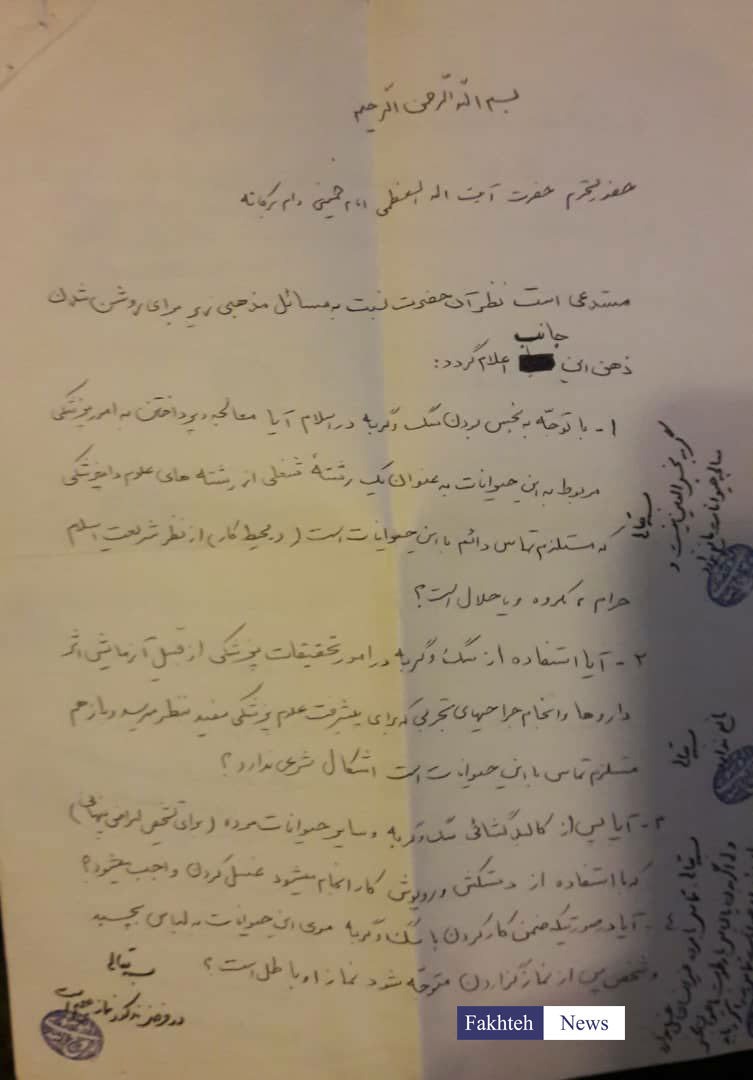 بسم الله الرحمن الرحیم
حضور محترم حضرت آیت اله العظمی امام خمینی دام برکاته
مستدعی است نظر آن حضرت نسبت به مسائل مذهبی زیر برای روشن شدن
جانب
ذهن این اعلام گردد:
۱- با توجّه به نجس بودن سگ و گربه در اسلام آیا معالجه و پرداختن به امور پزشکی
مربوط به این حیوانات به عنوان یک رشتهٔ شغلی از رشته های علوم دامپزشکی
که مستلزم تماس دائم با این حیوانات است (در محیط کار) از نظر شریعت اسلام
حرام، مکروه و یا حلال است؟
۲- آیا استفاده از سگ و گربه در امور تحقیقات پزشکی از قبیل آزمایش اثر
داروها و انجام جراحیهای تجربی که برای پیشرفت علوم پزشکی مفید بنظر میرسد و باز هم
مستلزم تماس با این حیوانات است اشکال شرعی ندارد؟
۳- آیا پس از کالبد گشائی سگ و گربه و سایر حیوانات مرده (برای تشخیص
که با استفاده از دستکش و روپوش کار انجام میشود غسل کردن واجب میشود؟
۴- آیا در صورتیکه ضمن کار کردن با سگ و گربه موی این حیوانات به لباس بچسبد
و شخص پس از نماز گزاردن متوجّه شود نماز او باطل است؟
بسمه تعالی
در فرض مذکور نماز
بسمه تعالی
گربه نجس العین نیست و
معالجه حیوانات مانع ندارد
بسمه تعالی
مانع ندارد
بسمه تعالی
Fakhteh News